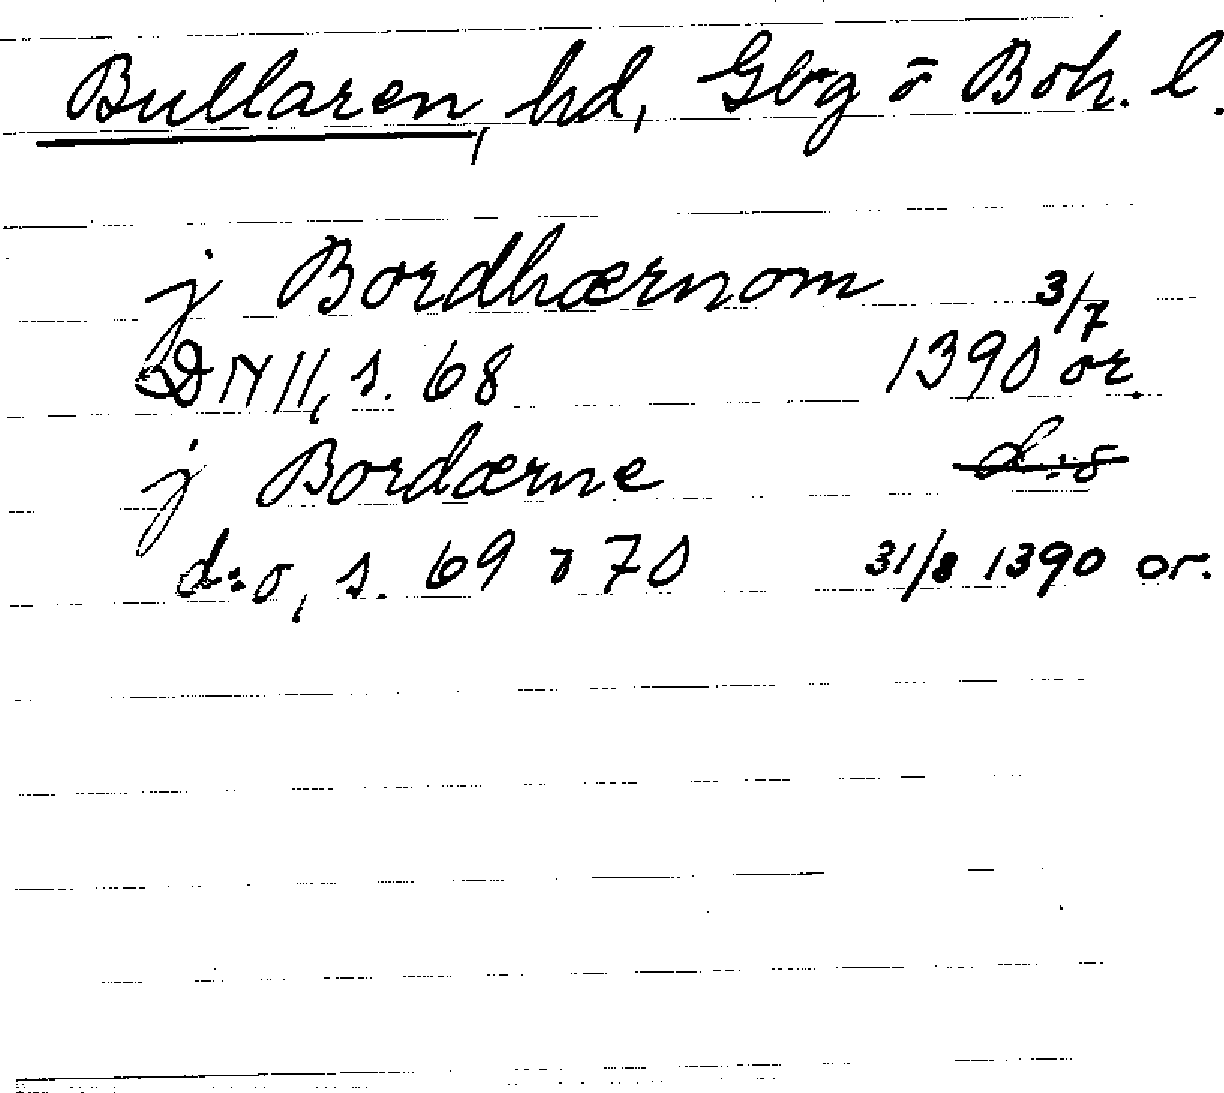 Bullaren, hd, Gbg o Boh. l.
j Bordhærnom 3/7
DN II, s. 68 1390 or.
j Bordærne d:o
d:o, s. 69 o 70 31/8 1390 or.